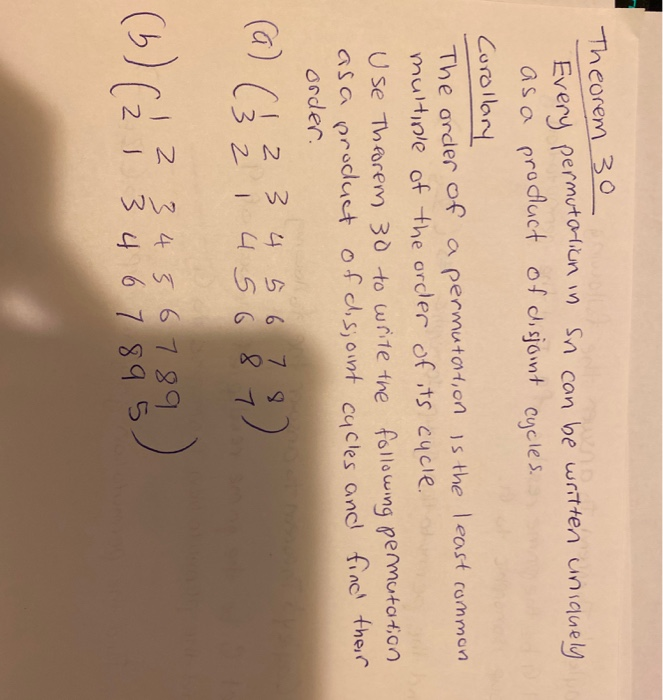 Theorem 30
Every permutation in Sn can be written uniquely
as a product of disjoint cycles.
Corollary
The order of a permutation is the least common
multiple of the order of its cycle.
Use Theorem 30 to write the following permutation
as a product of disjoint cycles and find their
order.
(a) ( 1 2 3 4 5 6 7 8
3 2 1 4 5 6 8 7 )
(b) ( 1 2 3 4 5 6 7 8 9
2 1 3 4 6 7 8 9 5 )